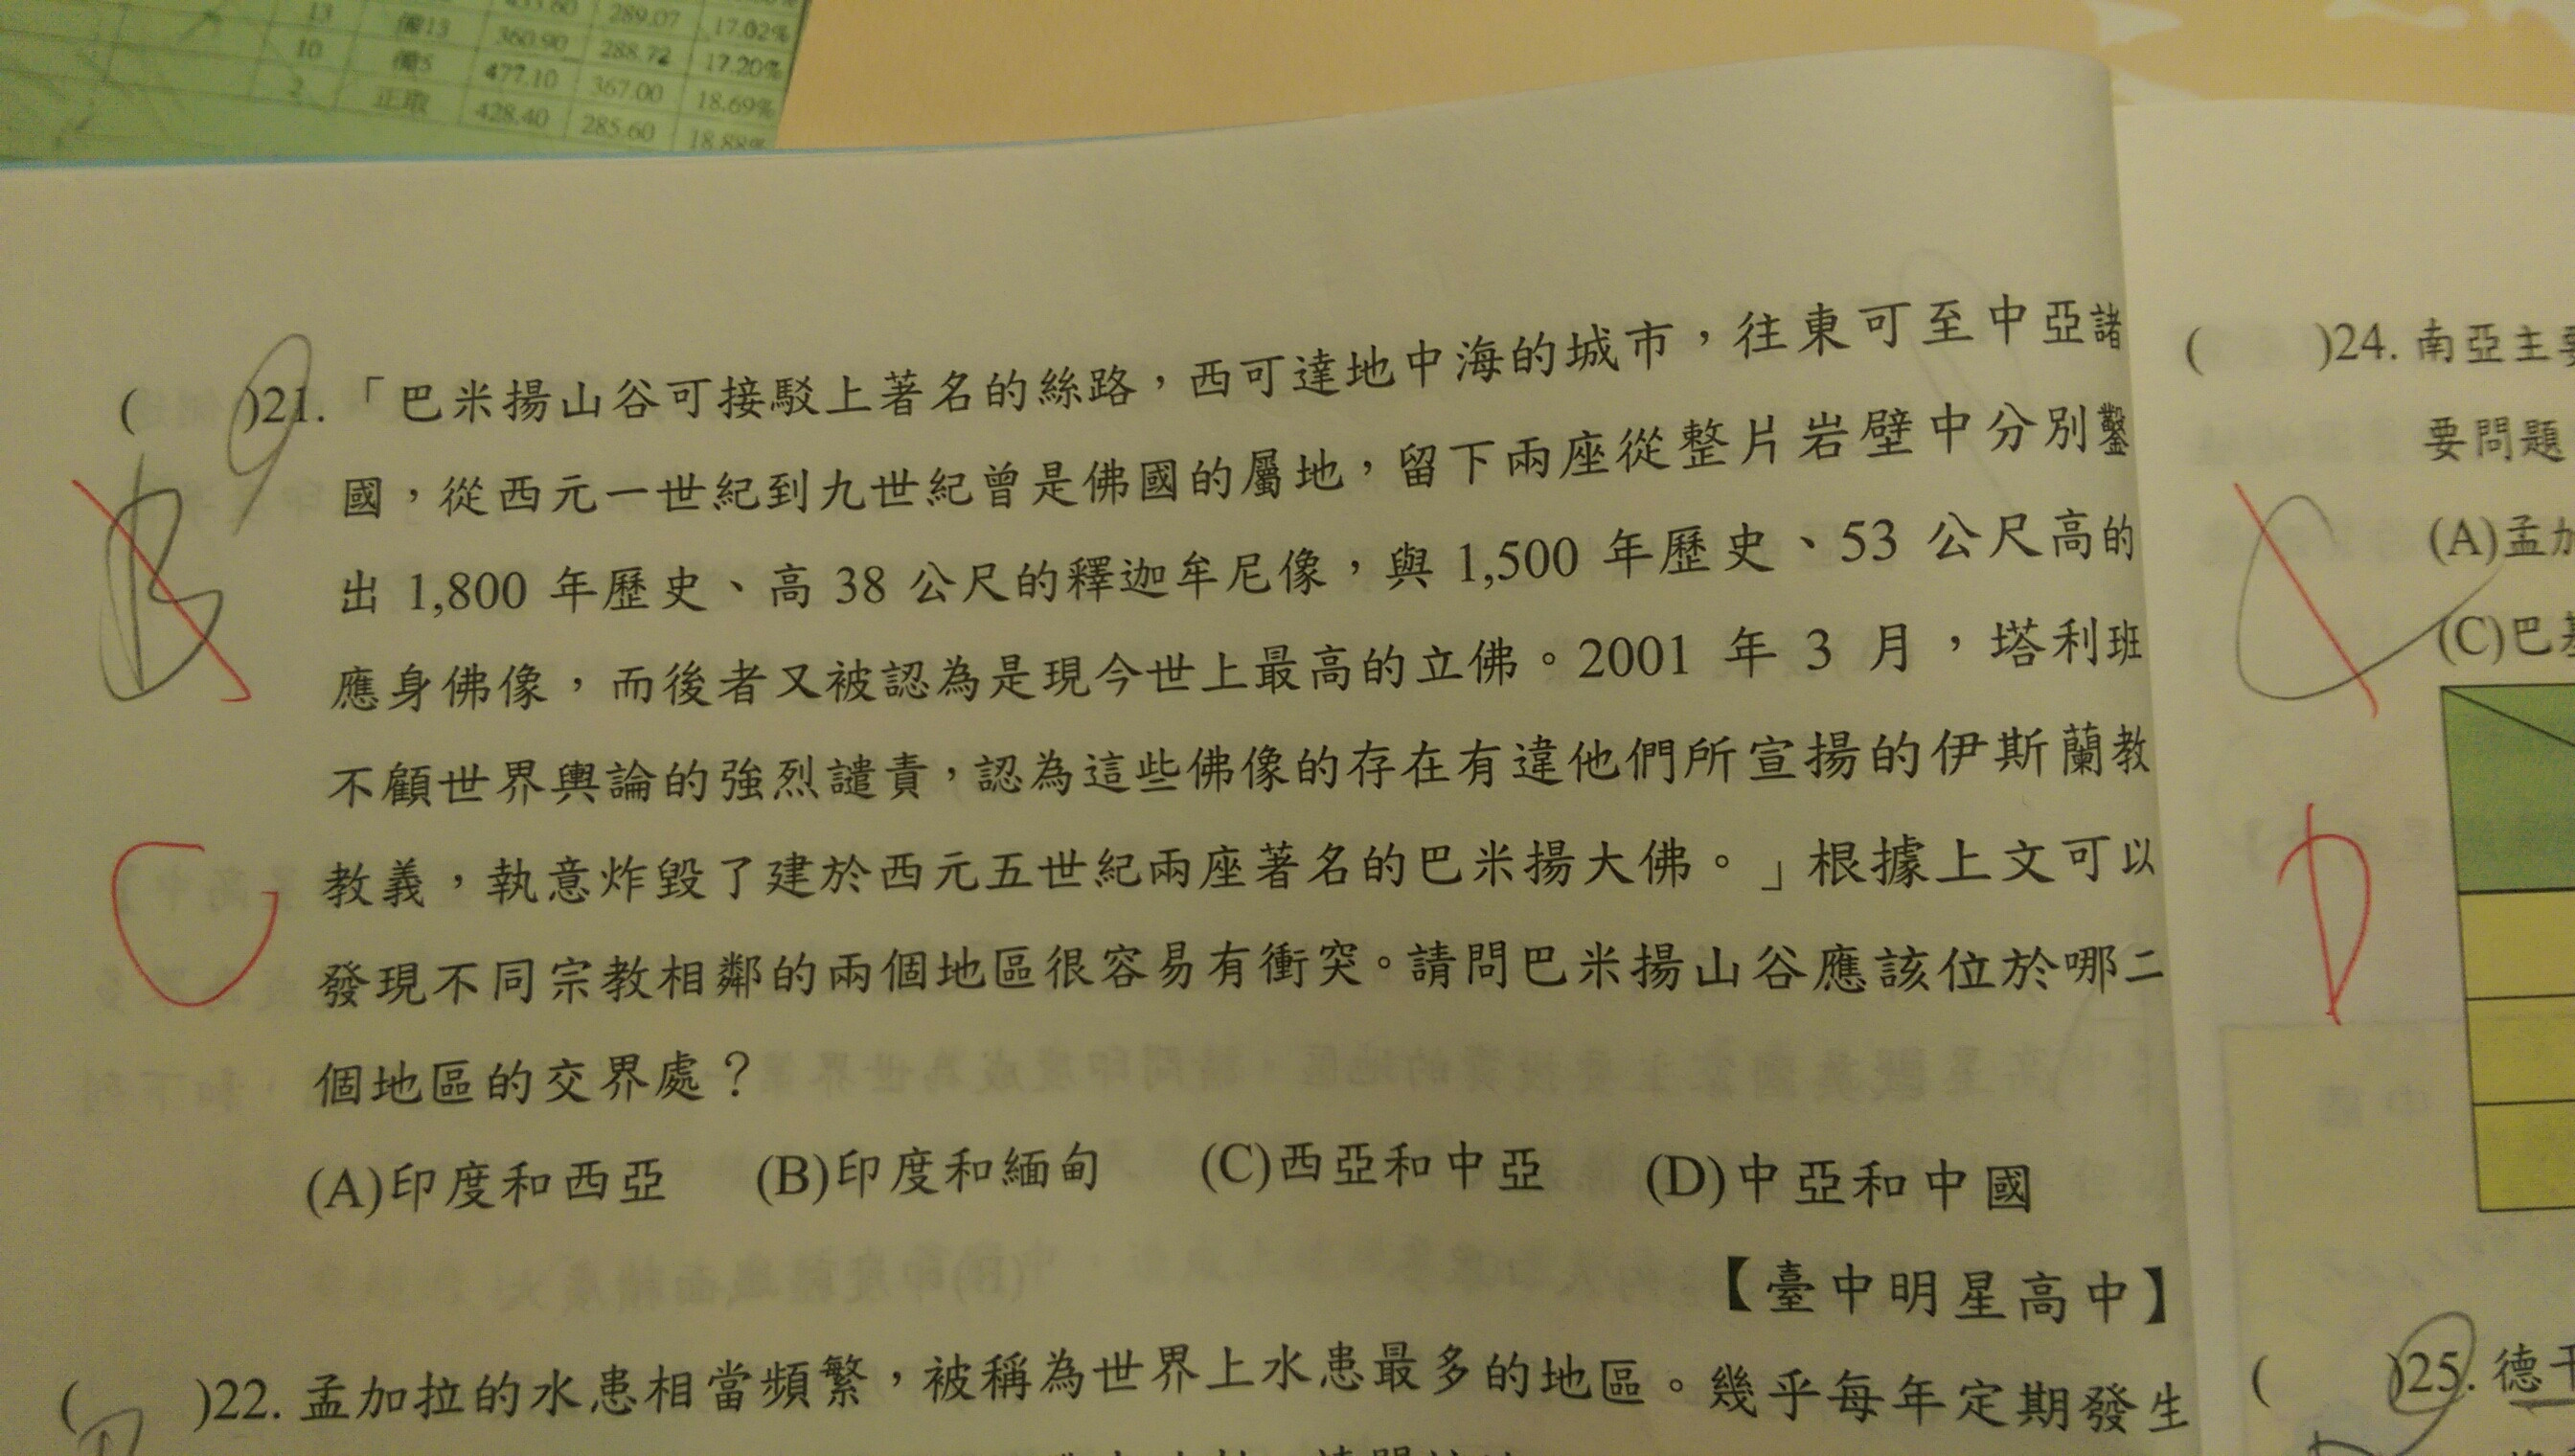 13 289.07 17.02%
10 備13 360.90 288.72 17.20%
2 備5 477.10 367.00 18.69%
正取 428.40 285.60 18.88%
( )21.「巴米揚山谷可接駁上著名的絲路，西可達地中海的城市，往東可至中亞諸
國，從西元一世紀到九世紀曾是佛國的屬地，留下兩座從整片岩壁中分別鑿
出 1,800 年歷史、高 38 公尺的釋迦牟尼像，與 1,500 年歷史、53 公尺高的
應身佛像，而後者又被認為是現今世上最高的立佛。2001 年 3 月，塔利班
不顧世界輿論的強烈譴責，認為這些佛像的存在有違他們所宣揚的伊斯蘭教
教義，執意炸毀了建於西元五世紀兩座著名的巴米揚大佛。」根據上文可以
發現不同宗教相鄰的兩個地區很容易有衝突。請問巴米揚山谷應該位於哪二
個地區的交界處？
(A)印度和西亞 (B)印度和緬甸 (C)西亞和中亞 (D)中亞和中國
【臺中明星高中】
( )22. 孟加拉的水患相當頻繁，被稱為世界上水患最多的地區。幾乎每年定期發生
B
C
( )24. 南亞主要
要問題
(A)孟加
(C)巴基
C
D
( )25. 德干